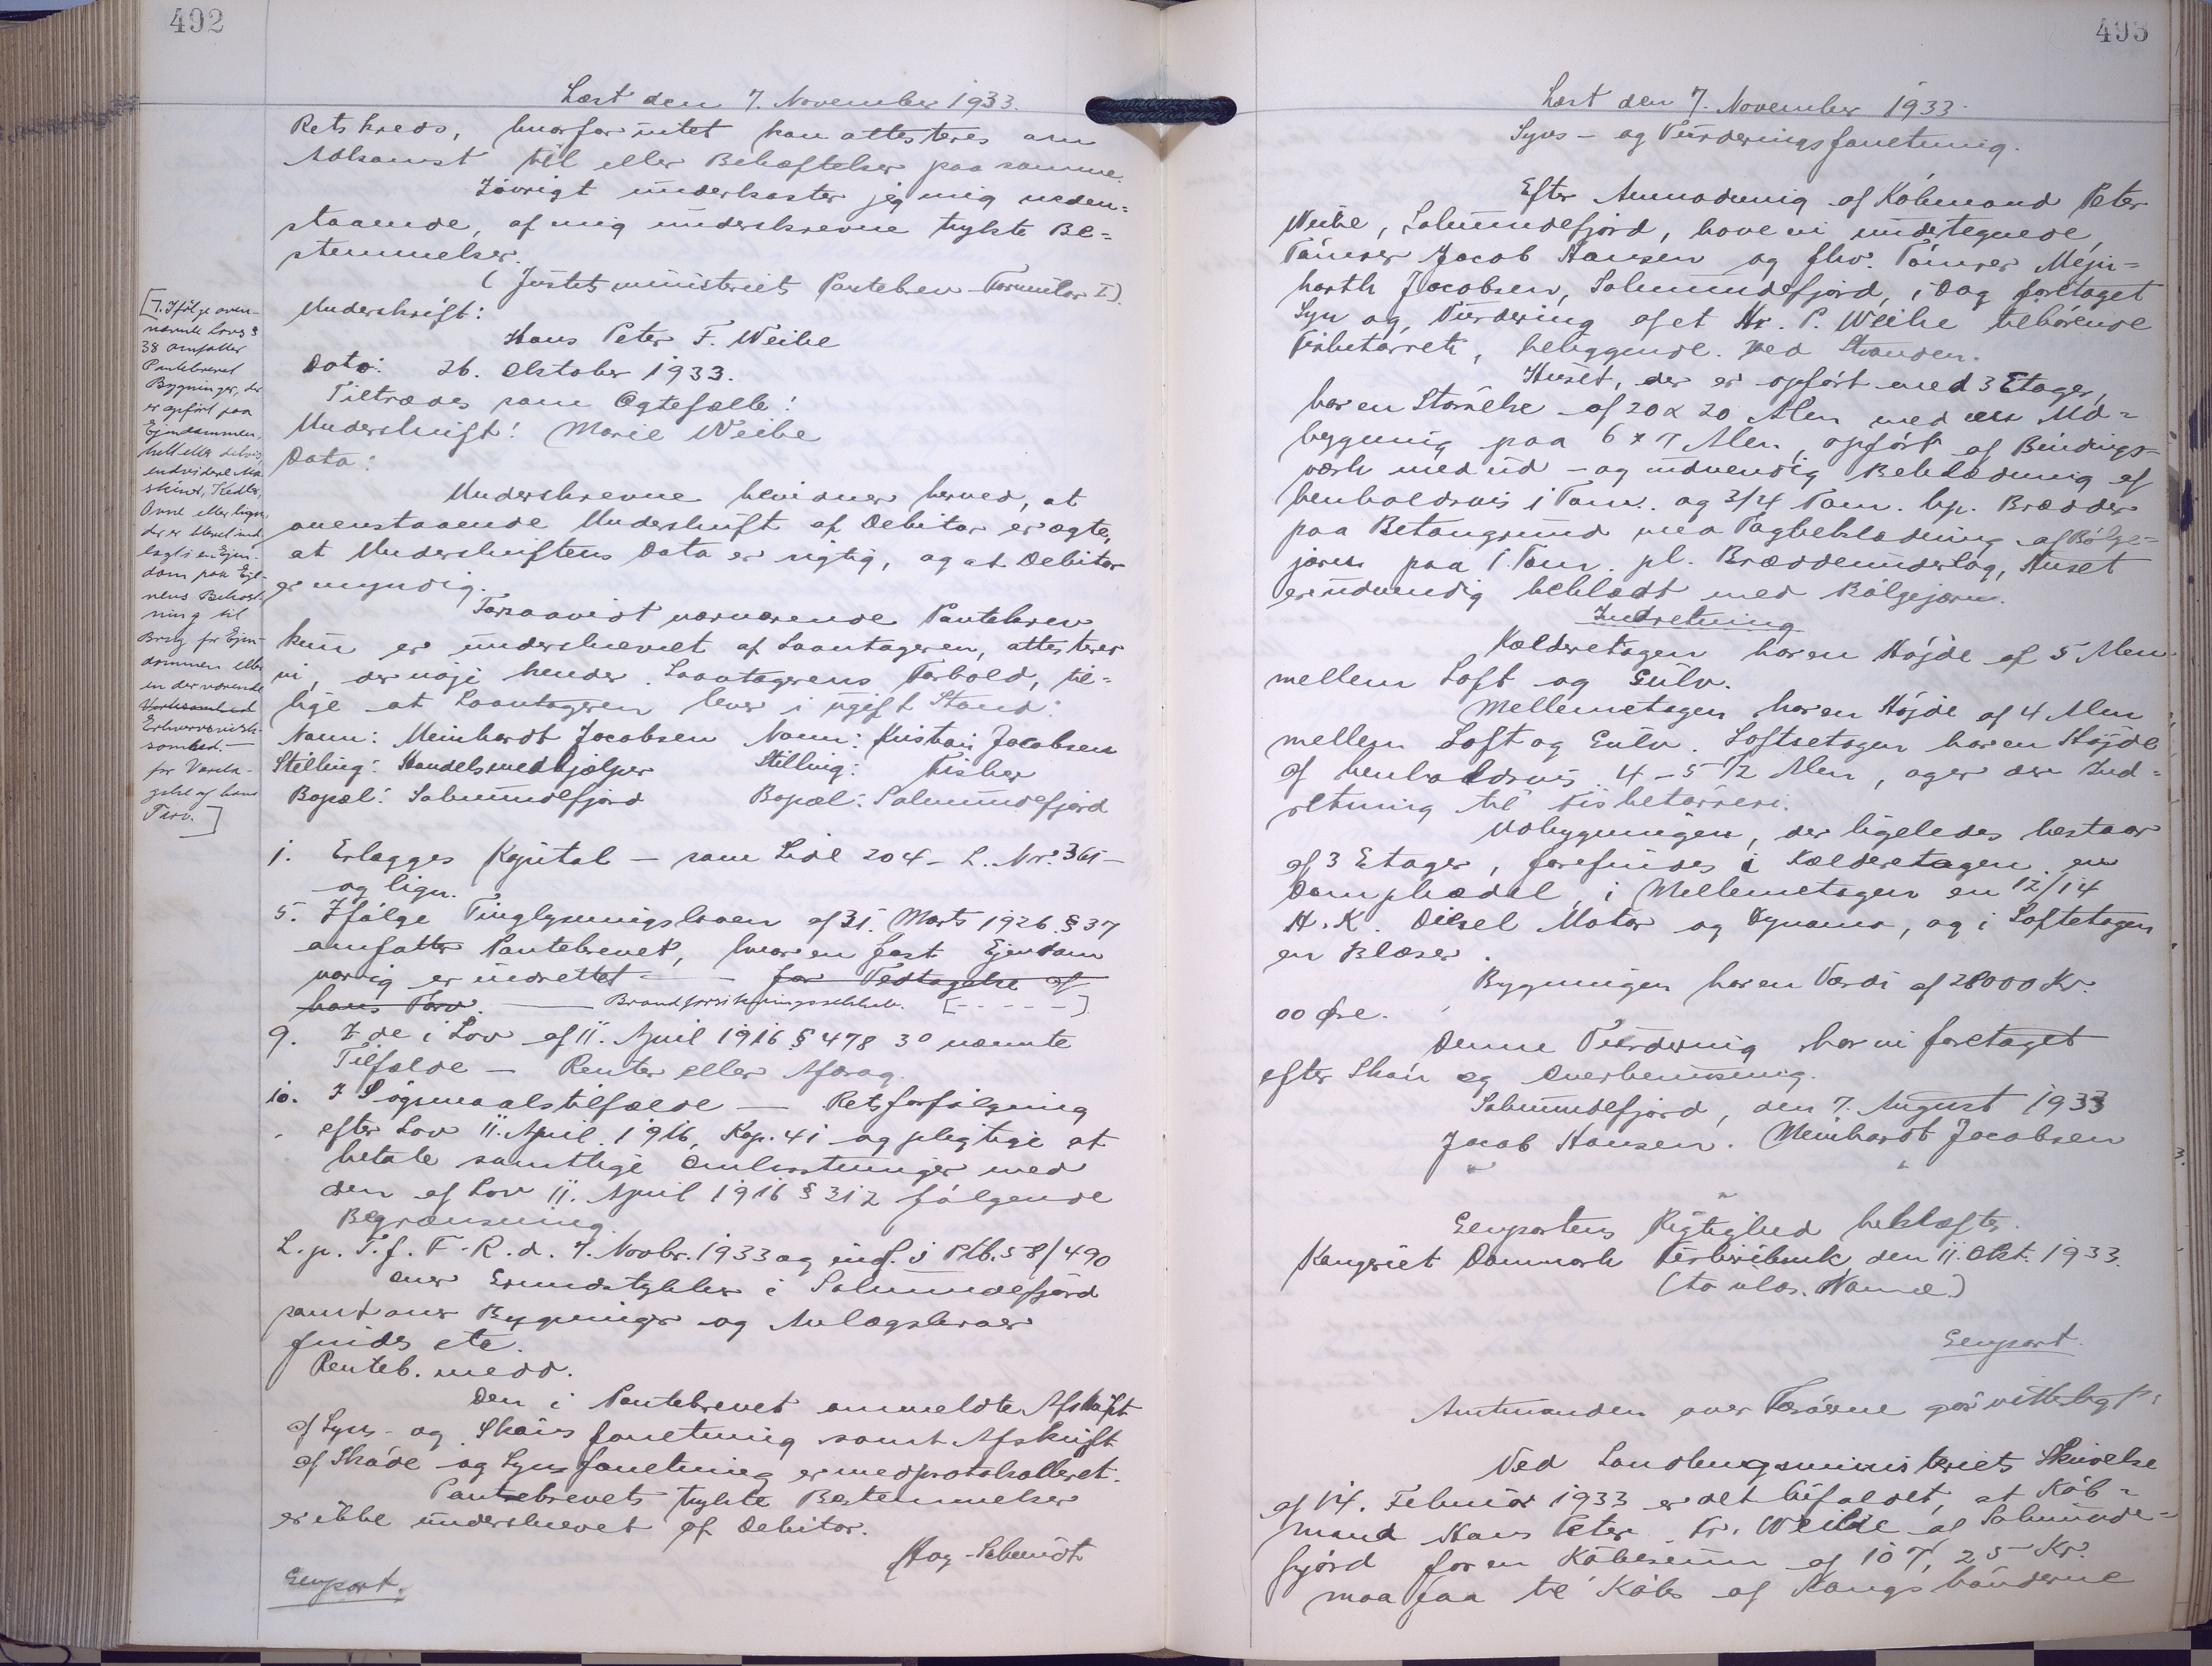 492
Læst den 7. November 1933.
Retskreds, hvorfor intet kan attesteres om
Adkomst til eller Behæftelser paa samme.
Iøvrigt underkaster jeg mig neden=
staaende, af mig underskrevne trykte Be=
stemmelser.
(Justitsministeriets Pantebrev-Formular I).
Underskrift:
Hans Peter F. Weihe
Dato: 26. Oktober 1933.
Tiltrædes som Ægtefælle:
Underskrift: Marie Weihe
Dato:
Underskrevne bevidner herved, at
ovenstaaende Underskrift af Debitor er ægte,
at Underskriftens Dato er rigtig, og at Debitor
er myndig.
Forsaavidt nærværende Pantebrev
kun er underskrevet af Laantageren, attesterer
vi, der nøje kender Laantagerens Forhold, til=
lige at Laantageren lever i ugift Stand:
Navn: Meinhardt Jacobsen Navn: Kristian Jacobsen
Stilling: Handelsmedhjælper Stilling: Fisker
Bopæl: Salmundefjord Bopæl: Salmundefjord
[7. Ifølge oven-
nævnte Lovs §
38 omfatter
Pantebrevet
Bygninger, der
er opført paa
Ejendommen,
helt eller delvis,
endvidere Ma
skiner, Kedler,
Ovne eller lign.
der er blevet ind
lagt i en Ejen-
dom paa Eje-
rens Bekost-
ning til
Brug for Ejen-
dommen eller
en derværende
Virksomhed
Erhvervsvirk-
somhed. —
for Vareta-
gelse af hans
Tarv.]
1. Erlægges Kapital — som Side 204 - L. Nr. 361 —
og lign.
5. Ifølge Tinglysningsloven af 31. Marts 1926 § 37
omfatter Pantebrevet, hvor en fast Ejendom
varig er indrettet — — for Vedtagelse af
hans Tarv. — Brandforsikringsselskab. [- - - - -]
9. I de i Lov af 11. April 1916 § 478 3° nævnte
Tilfælde — Renter eller Afdrag.
10. I Søgsmaalstilfælde — Retsforfølgning
efter Lov 11. April 1916, Kap. 41 og pligtige at
betale samtlige Omkostninger med
den af Lov 11. April 1916 § 312 følgende
Begrænsning.
L. p. T. f. F. R. d. 7. Novbr. 1933 og indf. i Ptb. 58/490
over Grundstykker i Salmundefjord
samt over Bygninger og Anlægshaver
findes etc.
Renteb. medd.
Den i Pantebrevet anmeldte Afskrift
af Syns- og Skøns forretning samt Afskrift
af Skøde og Synsforretning er medprotokolleret.
Pantebrevets trykte Bestemmelser
er ikke underskrevet af Debitor.
Genpart.
493
Læst den 7. November 1933.
Syns- og Vurderingsforretning.
Efter Anmodning af Købmand Peter
Weihe, Salmundefjord, have vi undertegnede,
Tømrer Jacob Hansen og fhv. Tømrer Mejn=
harth Jacobsen, Salmundefjord, i Dag foretaget
Syn og Vurdering af et Hr. P. Weihe tilhørende
Fisketørreri, beliggende ved Stranden.
Huset, der er opført med 3 Etager,
har en Størrelse af 20 x 20 Alen med en Ud=
bygning paa 6 x 7 Alen, opført af Bindings=
værk med ud- og indvendig Beklædning af
henholdsvis 1 Tom. og 3/4 Tom. hp. Brædder
paa Betongrund med Tagbeklædning af Bølge=
jærn paa 1 Tom. pl. Bræddeunderlag, Huset
er udvendig beklædt med Bølgejærn.
Indretning
Kælderetagen har en Højde af 5 Alen
mellem Loft og Gulv.
Mellemetagen har en Højde af 4 Alen
mellem Loft og Gulv. Loftsetagen har en Højde
af henholdsvis 4 - 5 1/2 Alen, og er der Ind=
retning til Fisketørreri.
Udbygningen, der ligeledes bestaar
af 3 Etager, forefindes i Kælderetagen en
Dampkædel, i Mellemetagen en 12/14
H. K. Diesel Motor og Dynamo, og i Loftetagen
en Blæser.
Bygningen har en Værdi af 28000 Kr.
00 Øre.
Denne Vurdering har vi foretaget
efter Skøn og Overbevisning.
Salmundefjord, den 7. August 1933
Jacob Hansen. Meinhardt Jacobsen
Genpartens Rigtighed bekræftes.
Kongeriet Danmark Fiskeribank, den 11. Okt. 1933.
(to ulæs. Navne)
Genpart.
Amtmanden over Færøerne gør vitterligt:
Ved Landbrugsministeriets Skrivelse
af 14. Februar 1933 er det bifaldet, at Køb=
mand Hans Peter Fr. Weihe af Salmunde=
fjord for en Købesum af 107, 25 Kr.
maa faa til Købs af Kongsbønderne